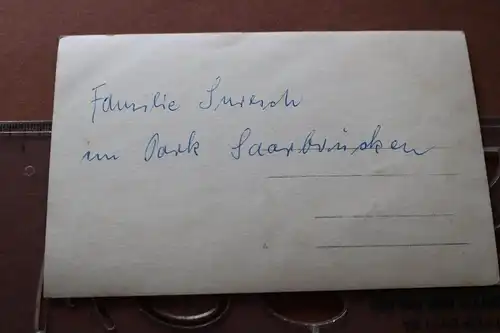 Familie
im Park Saarbrücken